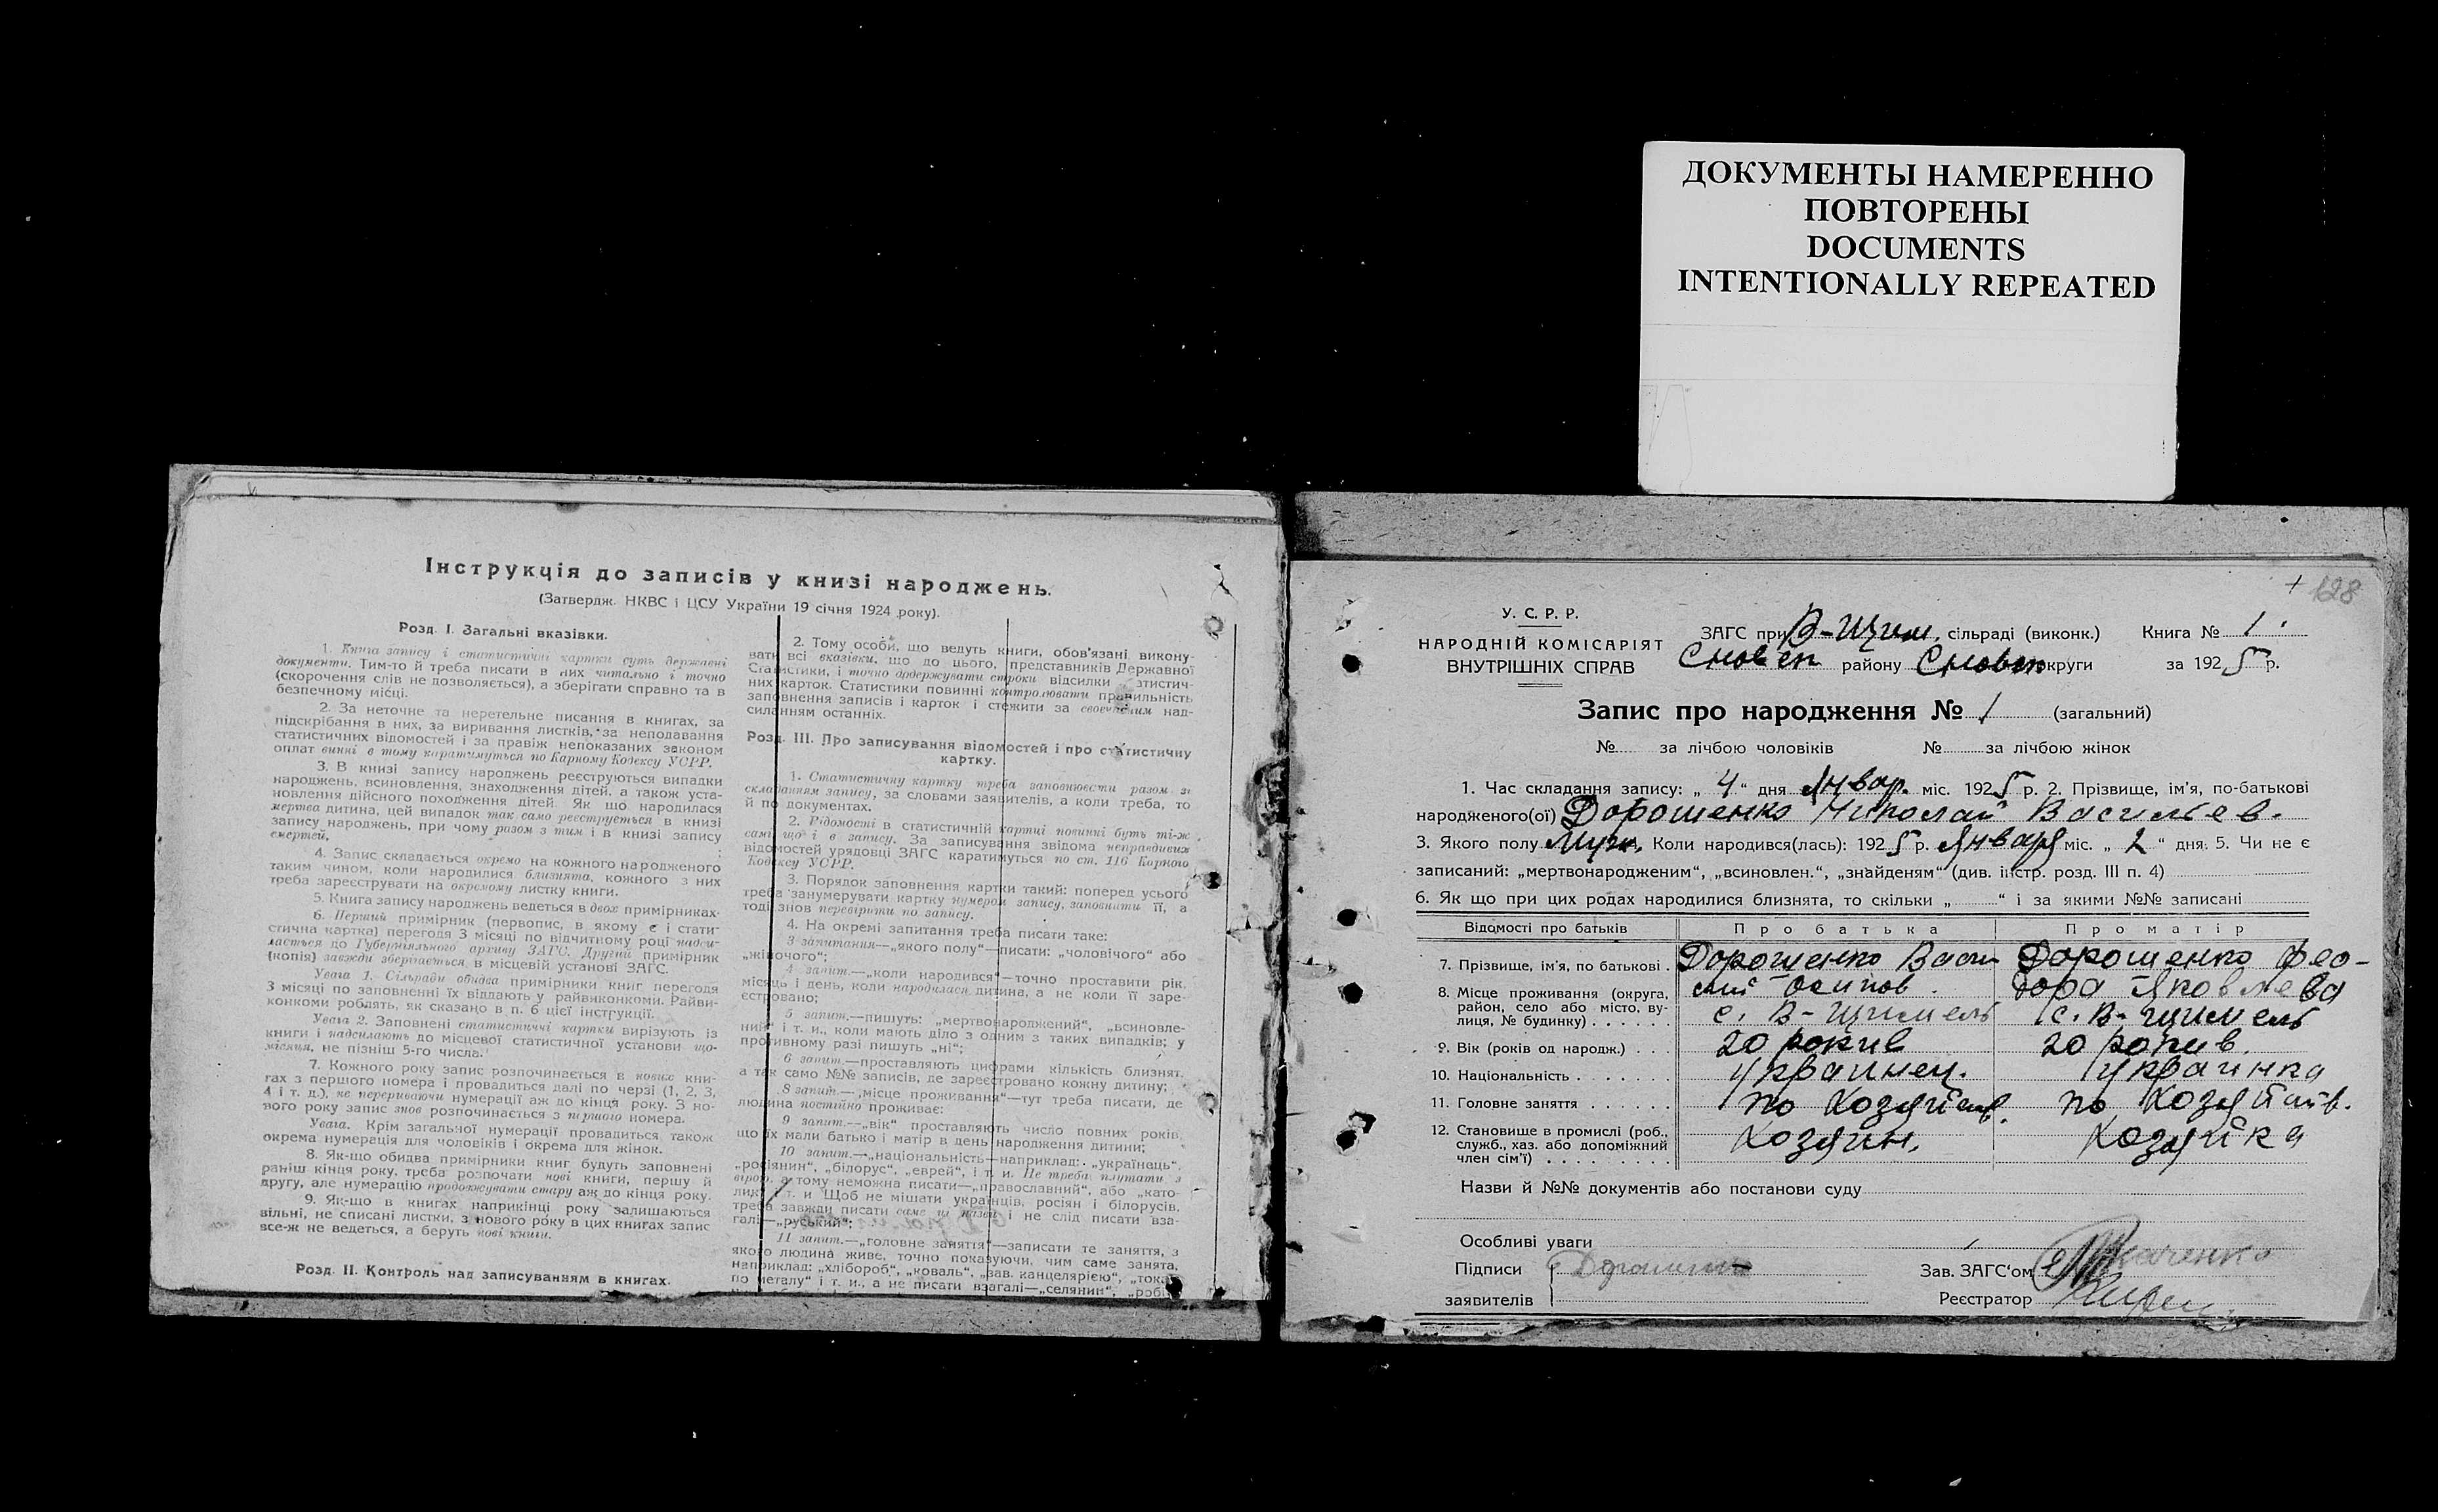 ДОКУМЕНТЫ НАМЕРЕННО
ПОВТОРЕНЫ
DOCUMENTS
INTENTIONALLY REPEATED
Інструкція до записів у книзі народжень.
(Затвердж. НКВС і ЦСУ України 19 січня 1924 року).
Розд. I. Загальні вказівки.
1. Книга запису і статистичні картки суть державні
документи. Тим-то й треба писати в них читально і точно
(скорочення слів не дозволяється), а зберігати справно та в
безпечному місці.
2. За неточне та неретельне писання в книгах, за
підскрібання в них, за виривання листків, за неподавання
статистичних відомостей і за правіж непоказаних законом
оплат винні в тому каратимуться по Карному Кодексу УСРР.
3. В книзі запису народжень реєструються випадки
народжень, всиновлення, знаходження дітей, а також уста-
новлення дійсного походження дітей. Як що народилася
мертва дитина, цей випадок так само реєструється в книзі
запису народжень, при чому разом з тим і в книзі запису
смертей.
4. Запис складається окремо на кожного народженого
таким чином, коли народилися близнята, кожного з них
треба зареєструвати на окремому листку книги.
5. Книга запису народжень ведеться в двох примірниках.
6. Перший примірник (первопис, в якому є і стати-
стична картка) перегодя 3 місяці по відчитному році надси-
лається до Губерніяльного архиву ЗАГС. Другий примірник
(копія) завжди зберігається в місцевій установі ЗАГС.
Увага 1. Сільради обидва примірники книг перегодя
3 місяці по заповненні їх віддають у райвиконкоми. Райви-
конкоми роблять, як сказано в п. 6 цієї інструкції.
Увага 2. Заповнені статистичні картки вирізують із
книги і надсилають до місцевої статистичної установи що-
місяця, не пізніш 5-го числа.
7. Кожного року запис розпочинається в нових кни-
гах з першого номера і провадиться далі по черзі (1, 2, 3,
4 і т. д.), не перериваючи нумерації аж до кінця року. З но-
вого року запис знов розпочинається з першого номера.
Увага. Крім загальної нумерації провадиться також
окрема нумерація для чоловіків і окрема для жінок.
8. Як-що обидва примірники книг будуть заповнені
раніш кінця року, треба розпочати нові книги, першу й
другу, але нумерацію продовжувати стару аж до кінця року.
9. Як-що в книгах наприкінці року залишаються
вільні, не списані листки, з нового року в цих книгах запис
все-ж не ведеться, а беруть нові книги.
Розд. II. Контроль над записуванням в книгах.
2. Тому особи, що ведуть книги, обов'язані викону-
вати всі вказівки, що до цього, представників Державної
Статистики, і точно додержувати строки відсилки статистич-
них карток. Статистики повинні контролювати правильність
заповнення записів і карток і стежити за своєчасним над-
силанням останніх.
Розд. III. Про записування відомостей і про статистичну
картку.
1. Статистичну картку треба заповнювати разом зі
складанням запису, за словами заявителів, а коли треба, то
й по документах.
2. Відомості в статистичній картці повинні буть ті-ж
самі що і в запису. За записування звідома неправдивих
відомостей урядовці ЗАГС каратимуться по ст. 116 Карного
Кодексу УСРР.
3. Порядок заповнення картки такий: поперед усього
треба занумерувати картку нумером запису, заповнити її, а
тоді знов перевірити по запису.
4. На окремі запитання треба писати таке:
3 запитання—„якого полу“—писати: „чоловічого“ або
„жіночого“;
4 запит.—„коли народився“—точно проставити рік,
місяць і день, коли народилася дитина, а не коли її заре-
єстровано;
5 запит.—пишуть: „мертвонароджений“, „всиновле-
ний“ і т. и., коли мають діло з одним з таких випадків; у
противному разі пишуть „ні“;
6 запит.—проставляють цифрами кількість близнят,
а так само №№ записів, де зареєстровано кожну дитину;
8 запит.—„місце проживання“—тут треба писати, де
людина постійно проживає:
9 запит.—„вік“ проставляють число повних років,
що їх мали батько і матір в день народження дитини;
10 запит.—„національність—наприклад: „українець“,
„росіянин“, „білорус“, „еврей“, і т. и. Не треба плутати з
вірою, а тому неможна писати—„православний“, або „като-
лик“ і т. и Щоб не мішати українців, росіян і білорусів,
треба завжди писати саме ці назви і не слід писати вза-
галі—„руський“;
11 запит.—„головне заняття“—записати те заняття, з
якого людина живе, точно показуючи, чим саме занята,
наприклад: „хлібороб“, „коваль“, „зав. канцелярією“, „токар
по металу“ і т. и., а не писати взагалі—„селянин“, „робіт-
+ 128
У. С. Р. Р.
НАРОДНІЙ КОМІСАРІЯТ
ВНУТРІШНІХ СПРАВ
ЗАГС при В-Щим. сільраді (виконк.) Книга № 1.
Сновск району Сновск округи за 1925 р.
Запис про народження № 1 (загальний)
№ за лічбою чоловіків № за лічбою жінок
1. Час складання запису: „4“ дня Январ. міс. 1925 р. 2. Прізвище, ім'я, по-батькові
народженого(ої) Дорошенко Николай Васильев.
3. Якого полу Муж. Коли народився(лась): 1925 р. Января міс. „2“ дня. 5. Чи не є
записаний: „мертвонародженим“, „всиновлен.“, „знайденям“ (див. інстр. розд. III п. 4)
6. Як що при цих родах народилися близнята, то скільки „ “ і за якими №№ записані
Відомості про батьків Про батька Про матір
7. Прізвище, ім'я, по батькові. Дорошенко Васи Дорошенко Фео-
лий Осипов. дора Яковлева
8. Місце проживання (округа,
район, село або місто, ву-
лиця, № будинку) с. В-Щимель с. В-Щимель
9. Вік (років од народж.) 20 рокив 20 рокив.
10. Національність Украинец. Украинка
11. Головне заняття по хозяйств. по хозяйств.
12. Становище в промислі (роб.,
служб., хаз. або допоміжний
член сім'ї) Хозяин. Хозяйка
Назви й №№ документів або постанови суду
Особливі уваги
Підписи Дорошенко Зав. ЗАГС'ом Ткаченко
заявителів Реєстратор